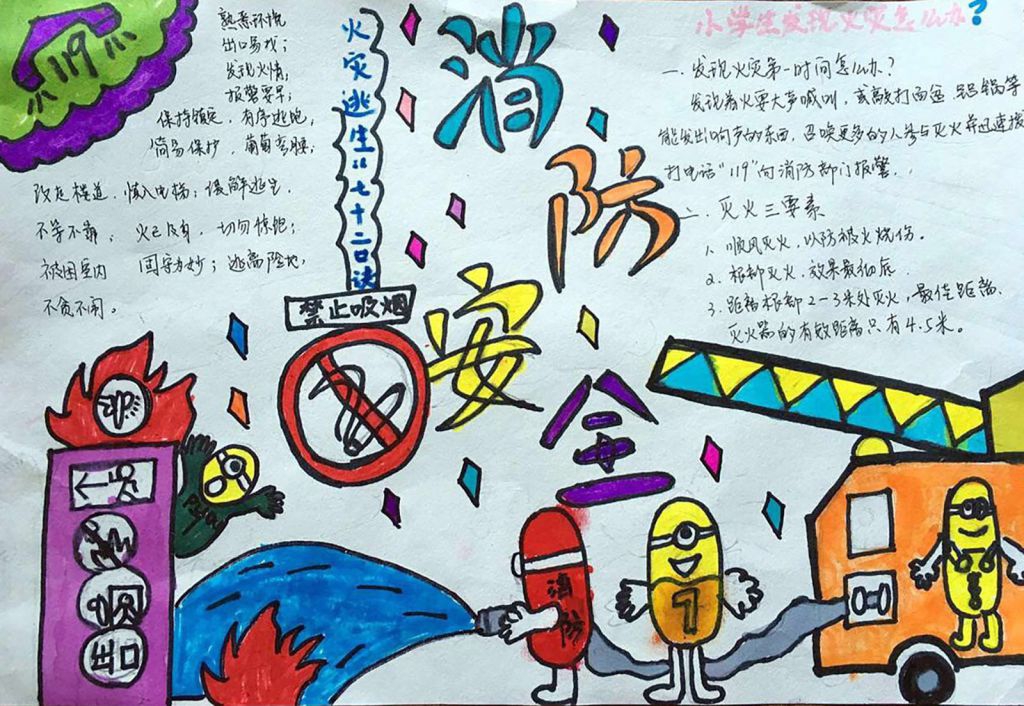 119
熟悉环境
出口易找;
发现火情,
报警要早;
保持镇定,有序逃跑,
简易保护,腰;
改走楼道,慎入电梯;缓解逃生,
不等不靠; 火已及身,切勿惊跑;
被困室内 固守为妙;逃离险地,
不贪不闹。
火灾逃生“七十二口诀
禁止吸烟
消防安全
小学生发现火灾怎么办?
一.发现火灾第一时间怎么办?
发现着火要大声喊叫,或敲打面盆、锅等
能发出响声的东西,召唤更多的人参与灭火并迅速拨
打电话“119”向消防部门报警.
二.灭火三要素
1.顺风灭火,以防被火烧伤。
2.根部灭火.效果最彻底
3.距离根部2-3米处灭火,最佳距离.
灭火器的有效距离只有4.5米。
出口
消防
1